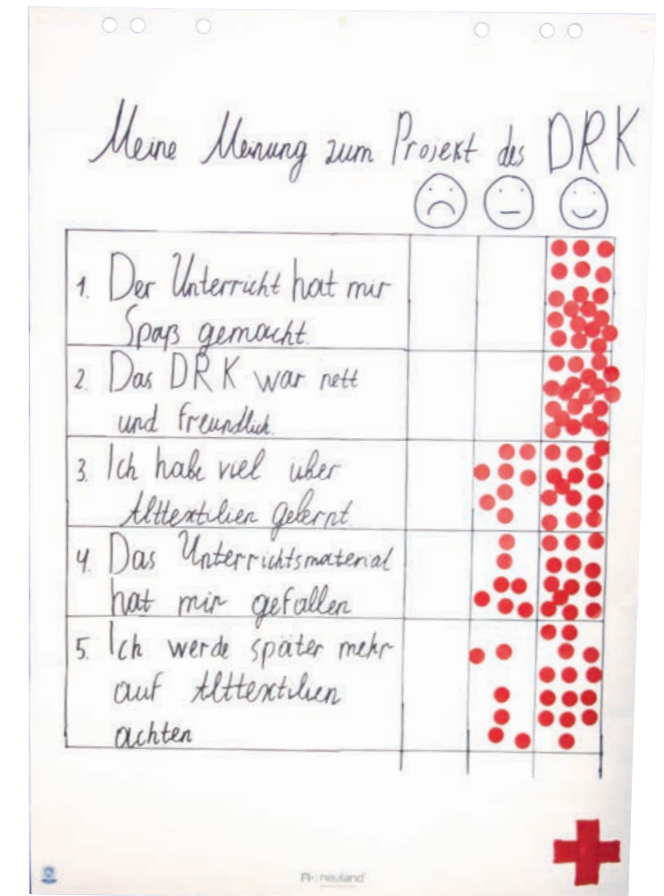 Meine Meinung zum Projekt des DRK
1. Der Unterricht hat mir
Spaß gemacht.
2. Das DRK war nett
und freundlich.
3. Ich habe viel über
Alttextilien gelernt.
4. Das Unterrichtsmaterial
hat mir gefallen
5. Ich werde später mehr
auf Alttextilien
achten
neuland